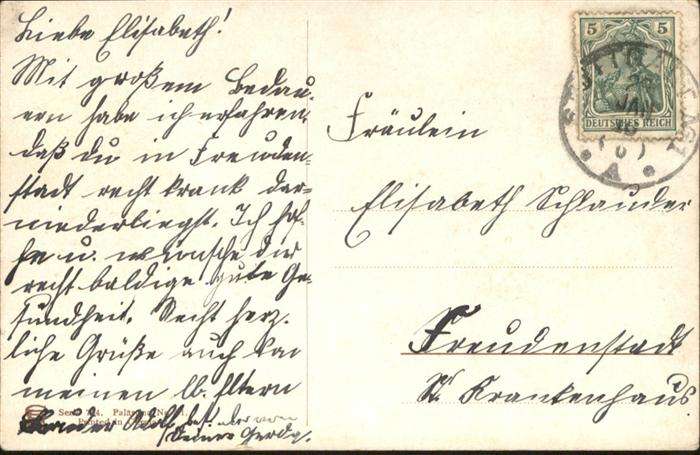 Liebe Elisabeth!
Mit großem Bedau-
ern habe ich erfahren
daß du in Freuden-
stadt recht krank dar-
niederliegst. Ich hof-
fe u. wünsche dir
recht baldige gute Ge-
sundheit. Recht herz-
liche Grüße auch von
meinen lb. Eltern
Bruder Adolf, bes. aber von
Deiner Gerda.
Printed in
Fräulein
Elisabeth Schlander
Freudenstadt
Krankenhaus
5 5
DEUTSCHES REICH